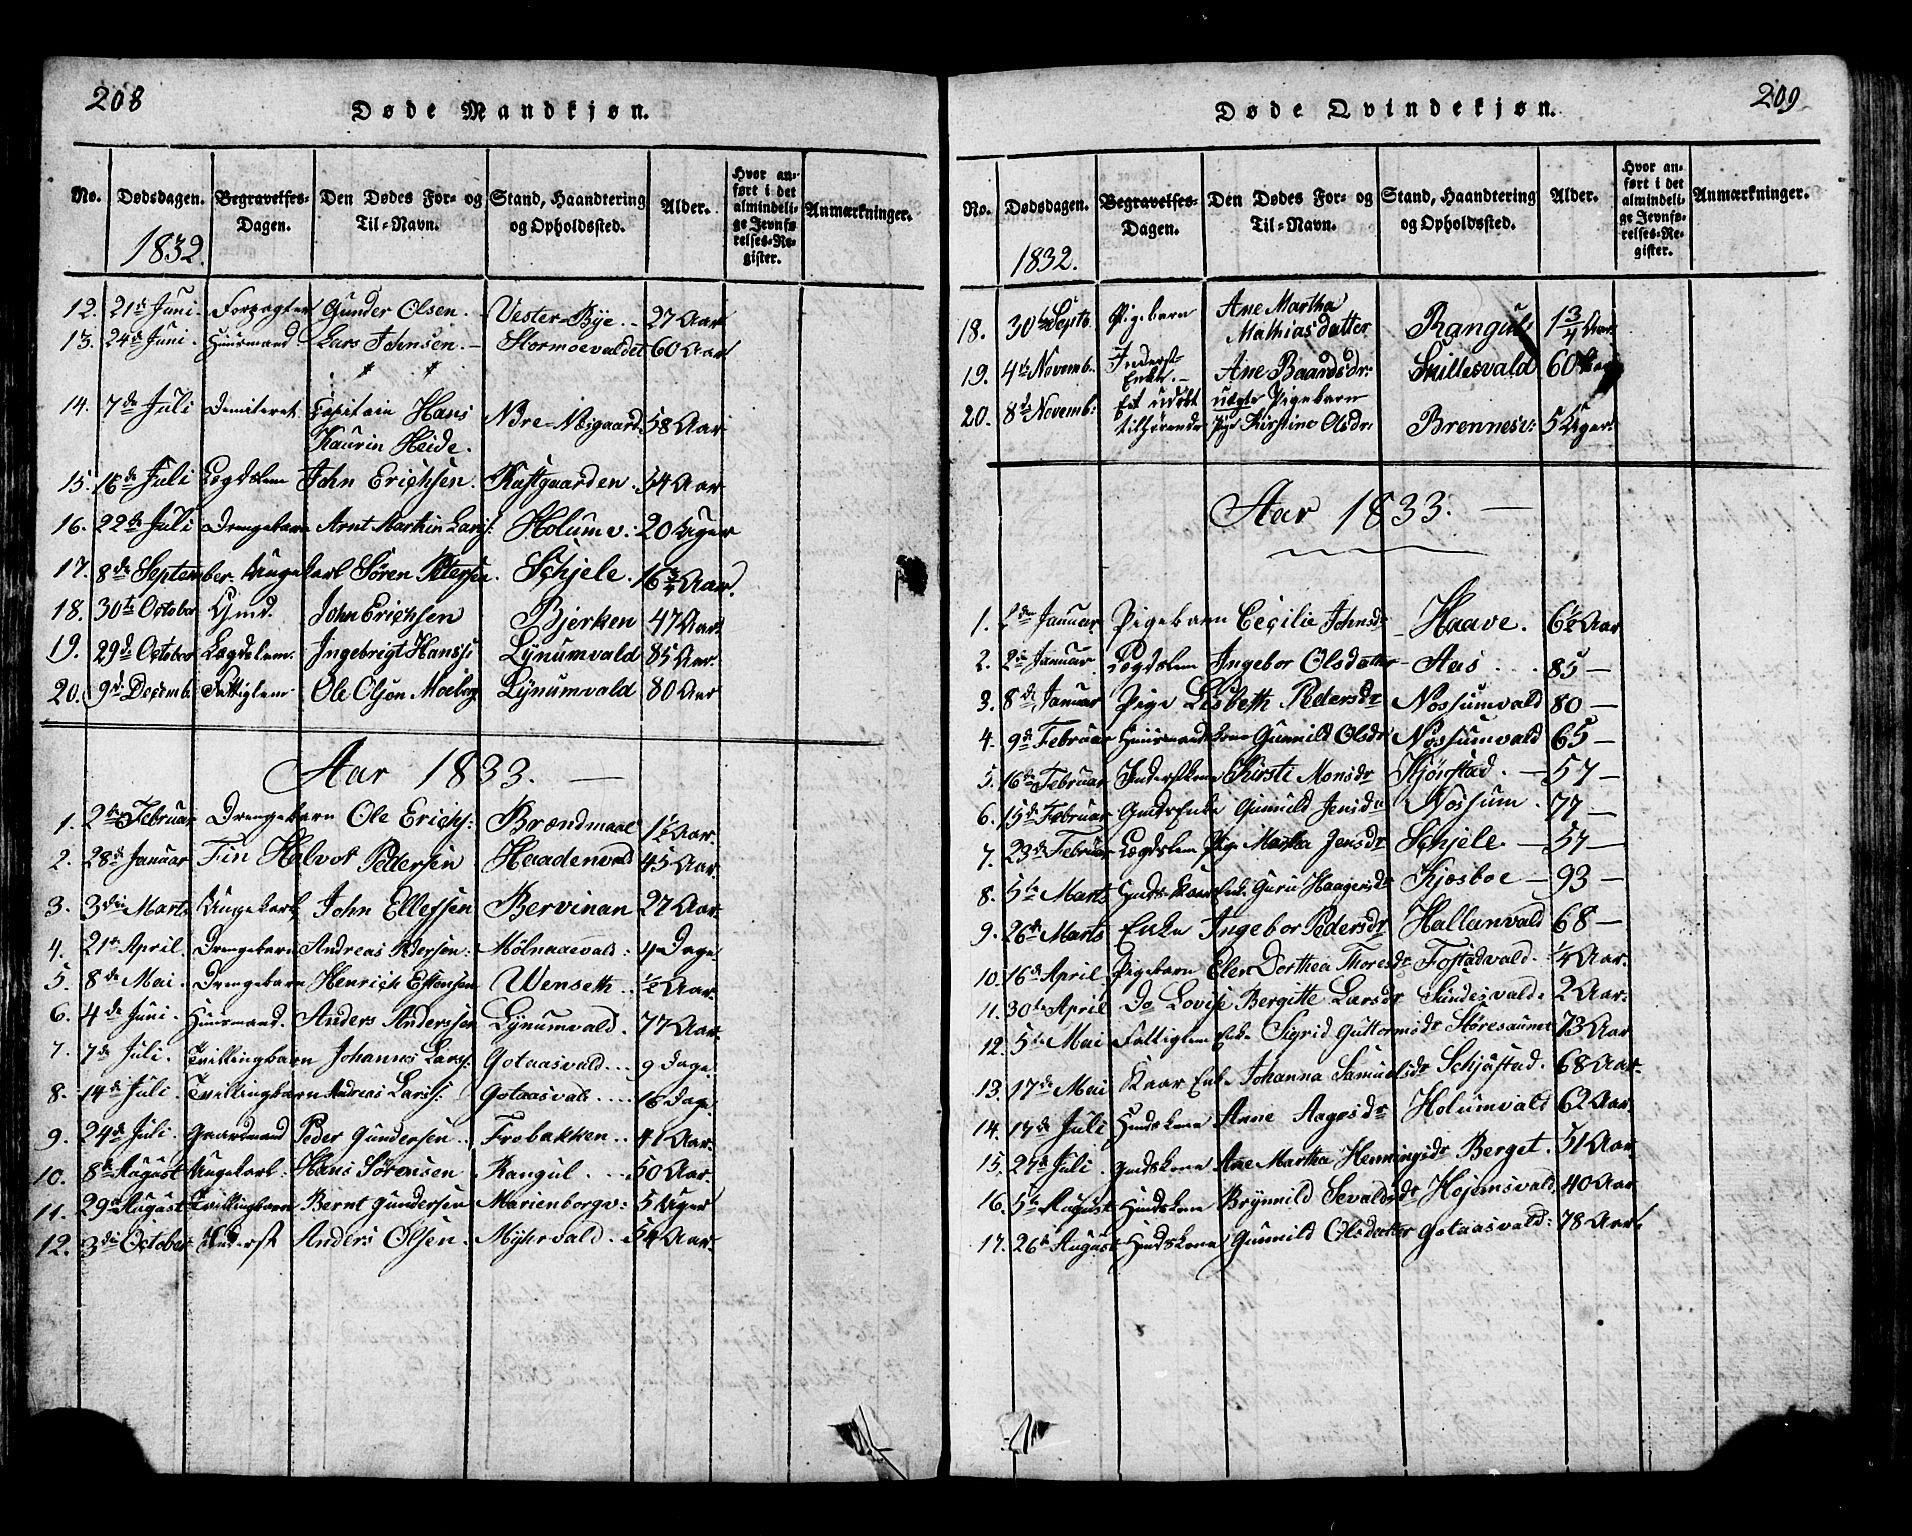 208
Døde Mandkjøn.
No. Dødsdagen. Begravelses-Dagen. Den Dødes For- og Til-Navn. Stand, Haandtering og Opholdssted. Alder. Hvor anført i det almindelige Jevnførelses-Register. Anmærkninger.
1832.
12. 21de Juni. Forpagter Gunder Olsen. Vester-Bye. 27 Aar
13. 24de Juni. Huusmand Lars Johnsen. Stormoevaldet 60 Aar
14. 7de Juli Demiteret Capitain Hans
Kaurin Heide. NDre-Næsgaard. 58 Aar
15. 16de Juli Lægdslem John Erichsen. Kastgaarden. 54 Aar
16. 22de Juli Drengebarn Arnt Martin Larss: Holumv: 20 Uger
17. 8de September. Ungekarl Sören Petersen. Schjele. 16 3/4 Aar.
18. 30te October Hmd. John Erichsen Bjerken 47 Aar.
19. 29de October Lægdslem. Ingebrigt Hanss: Lynumvald 85 Aar.
20. 9de Decemb. Fattiglem Ole Olson Moeborg Lynumvald 80 Aar
Aar 1833.
1. 2den Februar Drengebarn Ole Erichs: Brændmoae 1 1/2 Aar.
2. 28de Januar Fin Halvot Pedersen Haadenvald 45 Aar.
3. 3die Marts Ungekarl John Ellefsen Bervinan 27 Aar.
4. 21de April. Drengebarn Andreas Pedersen: Mölnaaevald: 4 Dage
5. 8de Mai. Drengebarn Henrich Estensen Wenseth. 1/2 Aar.
6. 4de Juni. Huusmand. Anders Anderssen Lynumvald. 77 Aar.
7. 7de Juli. Tvillingbarn Johannes Larss: Gotaasvald. 9 Dage.
8. 14de Juli. Tvillingbarn Andreas Larss: Gotaasvald. 16 Dage
9. 24de Juli. Gaardmand Peder Gundersen. Frobakken. 41 Aar.
10. 8de August Ungekarl. Hans Sörensen Rangul. 50 Aar.
11. 29de August Tvillingbarn Bernt Gundersen Marienborgv: 5 Uger
12. 3die October Inderst Anders Olsen. Myhrvald. 54 Aar.
209
Døde Qvindekjøn.
No. Dødsdagen. Begravelses-Dagen. Den Dødes For- og Til-Navn. Stand, Haandtering og Opholdssted. Alder. Hvor anført i det almindelige Jevnførelses-Register. Anmærkninger.
1832.
18. 30te Septb. Pigebarn Ane Martha
Mathiasdatter Rangul. 1 3/4 Aar.
19. 4de Novemb. Inderst-
Enke. Ane Baardsdr. Skillesvald 60 Aar
20. 8de Novemb: Et udöbt uægte Pigebarn
tilhørende Pige Kirstine Olsdr: Brennesv: 5 Uger.
Aar 1833.
1. 2den Januar Pigebarn Cecilie Johnsdr Haave. 6 1/2 Aar
2. 2de Januar. Lægdslem Ingebor Olsdatter Aas. 85 —
3. 8de Januar Pige Lisbeth Pedersdr Nossumvald 80 —
4. 9de Februar Huusmandskone Gunnild Olsdr Nossumvald 65 —
5. 16de Februar Inderstkone Kirsti Monsdr Kjörstad. — 57 —
6. 15de Februar Gmdsenke Gunnild Jensdr Nossum. 77 —
7. 23de Februar Lægdslem Pige Martha Jensdr Schjele. — 57 —
8. 5te Marts Guru Haagensdr Kjosboe — 93 —
9. 26de Marts Enke Ingebor Pedersdr Hallanvald 68 —
10. 16de April. Pigebarn Elen Dorthea Thoresdr Fostadvald. 1/4 Aar.
11. 30te April Do Lovise Bergitte Larsdr Sundesvald. 2 Aar.
12. 5te Mai Fattiglem Enke Sigrid Guttormsdr Störesaunet 73 Aar
13. 17de Mai Kaar Enke Johanna Samuelsdr Schjöstad. 68 Aar.
14. 13de Juli Hmdskone Anne Aagesdr Holumvald 62 Aar.
15. 27de Juli. Gmdskone Ane Martha Henningsdr Berget. 51 Aar
16. 5te August Hmdskone Brynnild Sevaldsdr Hojemsvald 40 Aar
17. 26de August Hmdskone Gunnild Olsdatter Gotaasvald: 78 Aar.